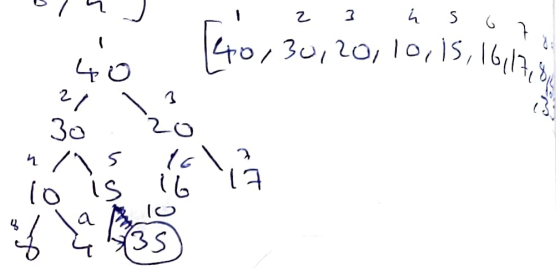 4 ]
1 2 3 4 5 6 7 8
[40, 30, 20, 10, 15, 16, 17, 8,
1
40
2 3
30 20
4 5 6 7
10 15 16 17
8 9 10
8 4 35